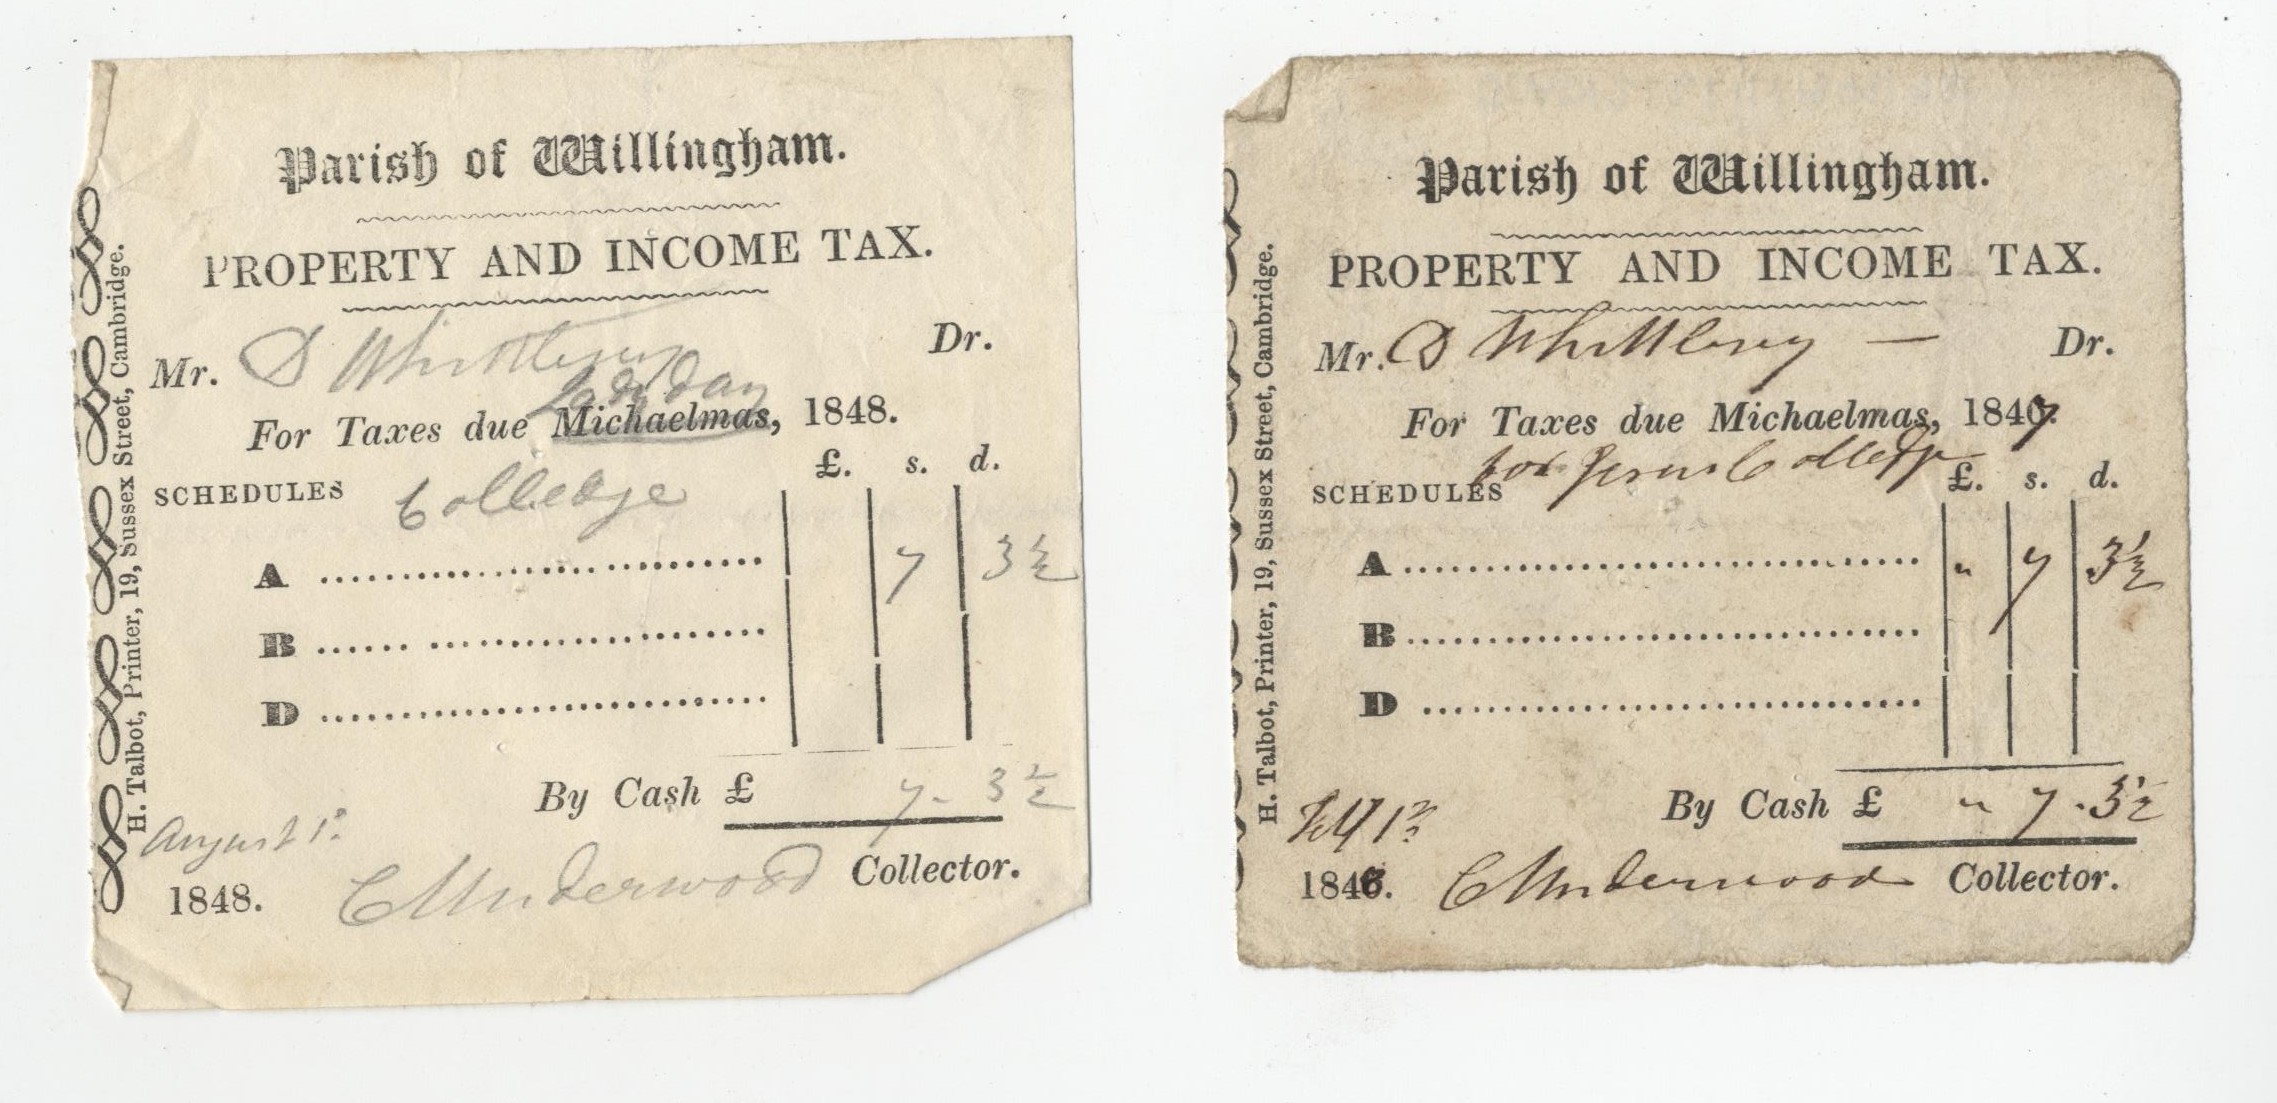 Parish of Willingham.
PROPERTY AND INCOME TAX.
Mr. D Whittlesey Dr.
Lady Day
For Taxes due Michaelmas, 1848.
£. s. d.
SCHEDULES Colledge
A 7 3½
B
D
By Cash £ 7 - 3½
August 1st
1848. C Underwood Collector.
H. Talbot, Printer, 19, Sussex Street, Cambridge.
Parish of Willingham.
PROPERTY AND INCOME TAX.
Mr. D Whittlesey — Dr.
For Taxes due Michaelmas, 1847.
for Jesus Colledge
SCHEDULES £. s. d.
A " 7 3½
B
D
By Cash £ " 7 . 3½
184 . C Underwood Collector.
H. Talbot, Printer, 19, Sussex Street, Cambridge.